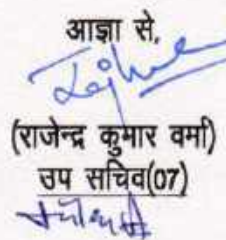 आज्ञा से,
(राजेन्द्र कुमार वर्मा)
उप सचिव(07)